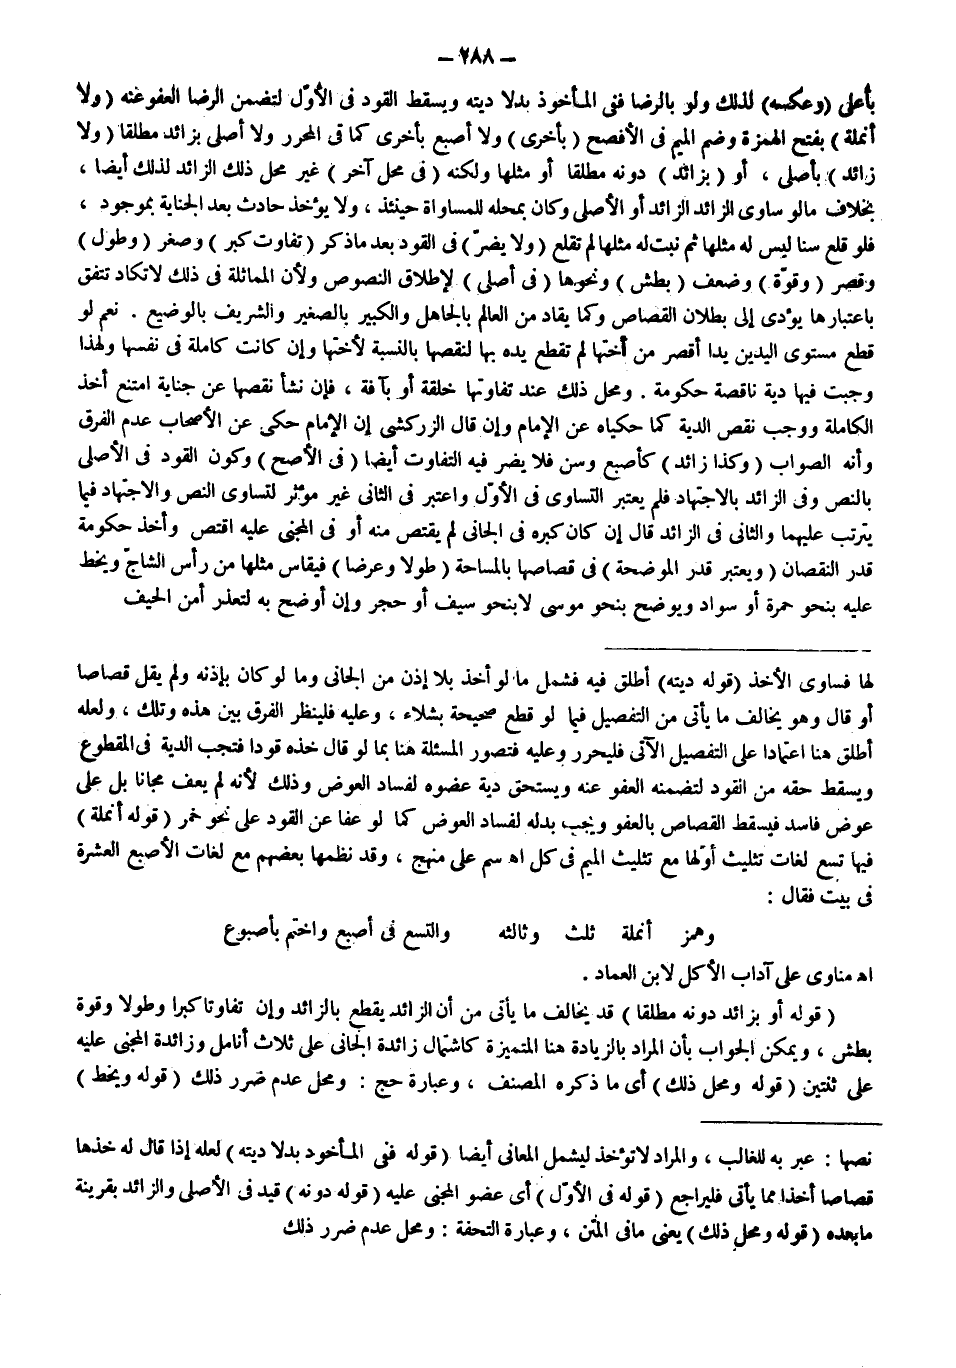 — ٢٨٨ —
بأعلى (وعكسه) لذلك ولو بالرضا ففى المأخوذ بدلا ديته ويسقط القود فى الأوّل لتضمن الرضا العفو عنه ( ولا
أنملة ) بفتح الهمزة وضم الميم فى الأفصح ( بأخرى ) ولا أصبع بأخرى كما فى المحرر ولا أصلى بزائد مطلقا ( ولا
زائد ) بأصلى ، أو ( بزائد ) دونه مطلقا أو مثلها ولكنه ( فى محل آخر ) غير محل ذلك الزائد لذلك أيضا ،
بخلاف مالو ساوى الزائد الزائد أو الأصلى وكان بمحله للمساواة حينئذ ، ولا يؤخذ حادث بعد الجناية بموجود ،
فلو قلع سنا ليس له مثلها ثم نبت له مثلها لم تقلع ( ولا يضرّ ) فى القود بعد ماذكر ( تفاوت كبر ) وصغر ( وطول )
وقصر ( وقوّة ) وضعف ( بطش ) ونحوها ( فى أصلى ) لإطلاق النصوص ولأن المماثلة فى ذلك لاتكاد تتفق
باعتبارها يؤدى إلى بطلان القصاص وكما يقاد من العالم بالجاهل والكبير بالصغير والشريف بالوضيع . نعم لو
قطع مستوى اليدين يدا أقصر من أختها لم تقطع يده بها لنقصها بالنسبة لأختها وإن كانت كاملة فى نفسها ولهذا
وجبت فيها دية ناقصة حكومة . ومحل ذلك عند تفاوتها خلقة أو بآفة ، فإن نشأ نقصها عن جناية امتنع أخذ
الكاملة ووجب نقص الدية كما حكياه عن الإمام وإن قال الزركشى إن الإمام حكى عن الأصحاب عدم الفرق
وأنه الصواب ( وكذا زائد ) كأصبع وسن فلا يضر فيه التفاوت أيضا ( فى الأصح ) وكون القود فى الأصلى
بالنص وفى الزائد بالاجتهاد فلم يعتبر التساوى فى الأوّل واعتبر فى الثانى غير مؤثر لتساوى النص والاجتهاد فيما
يترتب عليهما والثانى فى الزائد قال إن كان كبره فى الجانى لم يقتص منه أو فى المجنى عليه اقتص وأخذ حكومة
قدر النقصان ( ويعتبر قدر الموضحة ) فى قصاصها بالمساحة ( طولا وعرضا ) فيقاس مثلها من رأس الشاجّ ويخط
عليه بنحو حمرة أو سواد ويوضح بنحو موسى لابنحو سيف أو حجر وإن أوضح به لتعذر أمن الحيف
لها فساوى الأخذ (قوله ديته) أطلق فيه فشمل ما لو أخذ بلا إذن من الجانى وما لو كان بإذنه ولم يقل قصاصا
أو قال وهو يخالف ما يأتى من التفصيل فيما لو قطع صحيحة بشلاء ، وعليه فلينظر الفرق بين هذه وتلك ، ولعله
أطلق هنا اعتمادا على التفصيل الآتى فليحرر وعليه فتصور المسئلة هنا بما لو قال خذه قودا فتجب الدية فى المقطوع
ويسقط حقه من القود لتضمنه العفو عنه ويستحق دية عضوه لفساد العوض وذلك لأنه لم يعف مجانا بل على
عوض فاسد فيسقط القصاص بالعفو ويجب بدله لفساد العوض كما لو عفا عن القود على نحو خمر ( قوله أنملة )
فيها تسع لغات تثليث أوّلها مع تثليث الميم فى كل اه سم على منهج ، وقد نظمها بعضهم مع لغات الأصبع العشرة
فى بيت فقال :
وهمز أنملة ثلث وثالثه والتسع فى أصبع واختم بأصبوع
اه مناوى على آداب الأكل لابن العماد .
( قوله أو بزائد دونه مطلقا ) قد يخالف ما يأتى من أن الزائد يقطع بالزائد وإن تفاوتا كبرا وطولا وقوة
بطش ، ويمكن الجواب بأن المراد بالزيادة هنا المتميزة كاشتمال زائدة الجانى على ثلاث أنامل وزائدة المجنى عليه
على ثنتين ( قوله ومحل ذلك ) أى ما ذكره المصنف ، وعبارة حج : ومحل عدم ضرر ذلك ( قوله ويخط )
نصها : عبر به للغالب ، والمراد لاتؤخذ ليشمل المعانى أيضا ( قوله ففى المأخود بدلا ديته ) لعله إذا قال له خذها
قصاصا أخذا مما يأتى فليراجع ( قوله فى الأوّل ) أى عضو المجنى عليه ( قوله دونه ) قيد فى الأصلى والزائد بقرينة
مابعده ( قوله ومحل ذلك ) يعنى مافى المتن ، وعبارة التحفة : ومحل عدم ضرر ذلك